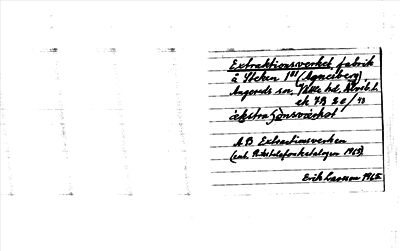 Extraktionsverket, fabrik
å Ytekern 1²¹ (Agneberg),
Angereds sn, Vättle hd, Älvsb. l.
ek 7B 2e/
äkstraʃonsvärket
A B Extraktionsverken
(enl. Rikstelefonkatalogen 1965)
Erik Larsson 1965